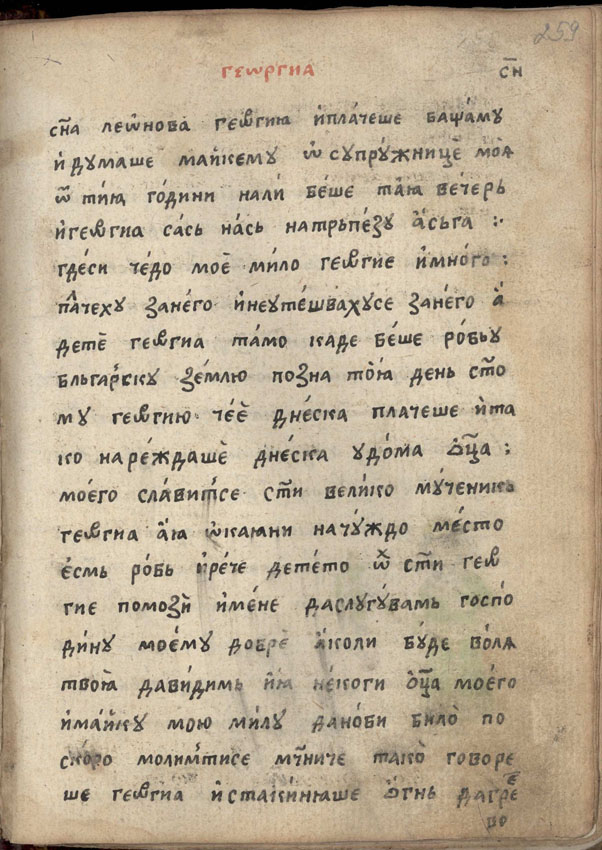 259
ГЕѠРГИА
с҃н
сн҃а леѡ́нова геѡ́гию и҆плачеше башта́му
и҆ думаше ма́йкему ѽ супру́жнице моѧ̀
ѿ ті́ꙗ го́дини нали́ бе́ше та́ꙗ ве́черь
и҆геѡ́гиа са́сь на́сь натрьпе́зу а҆́сьга :·
где́си че́до мое̂ ми́ло геѡ́гие и҆мно́го :
пла́чеху занего и҆неуте́швахусе зане́го а҆
дете̂ геѡ́гиа та́мо каде бе́ше ро́бьу
бльга́рску зе́млю позна то̀ꙗ день ст҃о
му геѡ́гию че́е̂ дне́ска плачеше и҆та
ко наре́ждаше̂ дне́ска удо́ма ѻ҆ц҃а :
моего сла́витсе ст҃и вели́ко му́ченикь
геѡ́гиа а҆́ꙗ ѡ҆каꙗ́ни начу́ждо ме́сто
е҆́смь ро́бь и҆рѐче дете́то ѽ ст҃и геѡ́
гие помозѝ и҆ме́не даслугу́вамь госпо́
ди́ну мое́му добре̂ а҆́коли бу́де во́лꙗ
твоꙗ̀ дави́димь и҆ꙗ̀ не́коги ѻ҆ц҃а моего
и҆ма́йку мою ми́лу дано́би било̀ по
ско́ро моли́мтисе мч҃ниче тако̀ говоре
ше геѡ́гиа и҆стаки́нꙗше ѻ҆́гнь дагре̂
во